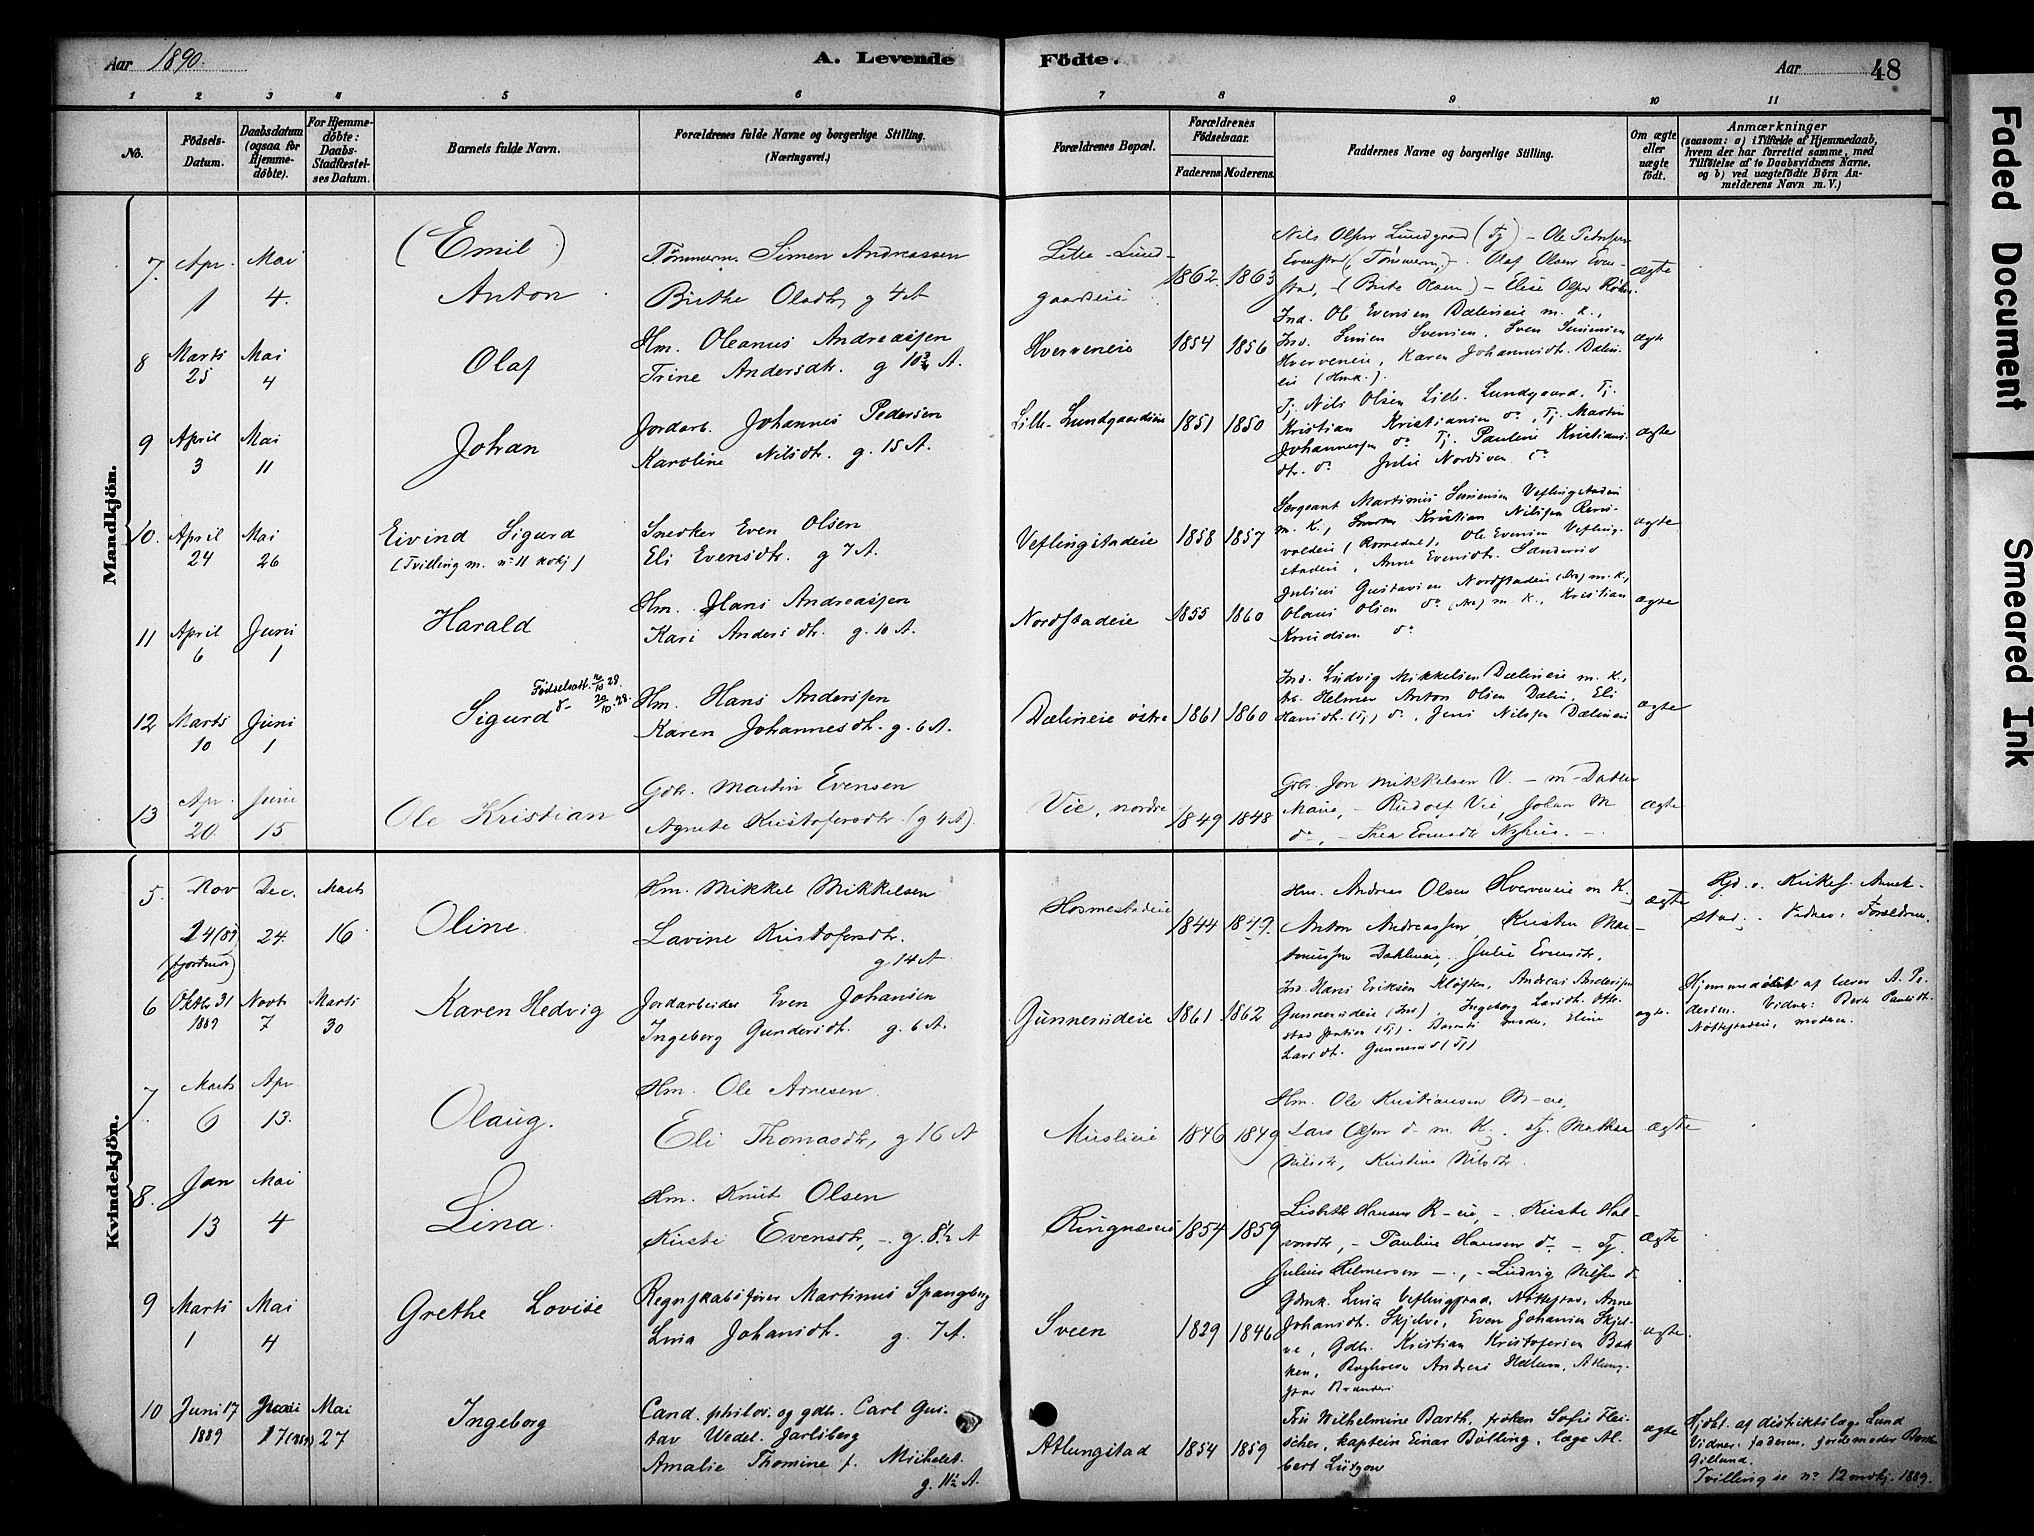 Aar 1890.
A. Levende
Födte.
Aar
48
1 2 3 4 5 6 7 8 8 9 10 11
No.
Födsels-Datum.
Daabsdatum (ogsaa for Hjemmedöbte).
For Hjemmedöbte: Daabs-Stadfestelses Datum.
Barnets fulde Navn.
Forældrenes fulde Navne og borgerlige Stilling.
(Næringsvei.)
Forældrenes Bopæl.
Forældrenes Fødselsaar.
Faderens Moderens
Faddernes Navne og borgerlige Stilling.
Om ægte eller uægte födt.
Anmærkninger
(saasom: a) i Tilfælde af Hjemmedaab,
hvem der har forrettet samme, med
Tilföielse af to Daabsvidners Navne,
og b) ved uægtefödte Börn Anmelderens
Navn m. V.)
Mandkjön.
7. Apr. 1 Mai 4.
(Emil)
Anton
Tömmerm. Simen Andreassen
Birthe Olsdtr, g 4 A
Lille-Lundgaardeie
1862 1863
Nils Olsen Lundgaard (Tj) - Ole Pedersen
Evenstad (Tömmerm.) - Olaf Olsen Evenstad,
ægte
8 Marts 25 Mai 4
Olaf
Hm. Oleanus Andreassen
Trine Andersdtr. g 10¾ A.
Hverveneie
1854 1856
Ind. Ole Evensen Dælineie m. k.,
Ind. Simen Svensen, Sven Simensen
Hverveneie, Karen Johannesdtr. Dælineie
(Hmk.).
ægte
9 April 3 Mai 11
Johan
Jordarb. Johannes Pedersen
Karoline Nilsdtr. g. 15 A.
Lille-Lundgaardeie
1851 1850
Tj. Nils Olsen Lille Lundgaard, Tj.
Kristian Kristiansen do, Tj. Martin
Johannessen do Tj. Pauline Kristiansdtr.
do Julie Nordsven do
ægte
10. April 24 Mai 26
Eivind Sigurd
(Tvilling m. no 11 kvkj)
Snedker Even Olsen
Eli Evensdtr. g 7 A.
Veflingstadeie
1858 1857
Sergeant Martinus Simensen Veflingstadeie
m. k., Kristian Nilssen
(Romedal), Ole Evensen Veflingstadeie,
Anne Evensdtr.
ægte
11 April 6 Juni 1
Harald
Hm. Hans Andreassen
Kari Andersdtr. g. 10 A.
Nordstadeie
1855 1860
Julius Gustavsen Nordstadeie m. k.,
Olaus Olsen do m. k., Kristian
Knudsen do
ægte
12 Marts 10 Juni 1
Sigurd
Hm. Hans Anderssen
Karen Johannesdtr. g. 6 A.
Dælineie östre
1861 1860
Ind. Ludvig Mikkelsen Dælineie m. k.,
Helmer Anton Olsen Dælin, Eli
Hansdtr. (Tj) do, Jens Nilssen Dælineie
ægte
13 Apr. 20. Juni 15
Ole Kristian
Gdbr. Martin Evensen
Agnete Kristofersdtr (g 4 A).
Vie, nordre
1849 1848
Gbr. Jon Mikkelsen V. - m. Datter
Marie, - Rudolf Vie, Johan M
do, - Thea Evensdtr
ægte
Kvindekjön.
5. Nov 14 (89) (fjortende) Dec. 24. Marts 16
Oline.
Hm. Mikkel Mikkelsen
Lavine Kristofersdtr.
g 14 A
Hosmestadeie
1844 1849.
Hm. Andreas Olsen Hverveneie m K.
Anton Andreassen,
Julie Evensdtr.
ægte
Vidner: Forældrene.
6 Oktbr 31 1889 Novb 7 Marts 30
Karen Hedvig
Jordarbeider Even Johansen
Ingeborg Gundersdtr. g. 6 A.
Gunnersdeie
1861 1862
Ind. Hans Eriksen Kloften, Andreas Anderssen
Gunnersdeie (Ind), Ingeborg Larsdtr.
Larsdtr. Gunnersd (Tj)
ægte.
Hjemmedöbt af lærer A. Pedersen.
Vidner: Berte Paulsdtr.
Nöttestadeie, moderen.
7. Marts 6 Apr 13.
Olaug.
Hm. Ole Arnesen
Eli Thomasdtr, g 16 A
Muslieie
1846 1849
Hm. Ole Kristiansen M-eie,
Lars Olsen do m. K., Tj. Mathea
Nilsdtr, Kristine Nilsdtr.
ægte
8. Jan 13 Mai 4
Lina.
Hm. Knut Olsen
Kirsti Evensdtr, - g. 8½ A
Ringneseie
1854 1859
Lisbeth Hansen R-eie, - Kirste Halvorsdtr,
- Pauline Hansen do - Tj.
Julius Helmersen -, - Ludvig Nilsen do
ægte
9 Marts 1 Mai 4
Grethe Lovise
Regnskabsförer Martinus Spangberg
Lina Johansdtr. g. 7 A.
Sveen
1829 1846
Gdmk. Lina Veflingstad, Nöttestad, Anne
Johansdtr. Skjelve, Even Johansen Skjelve,
Gdbr. Kristian Kristofersen Bakken,
Andreas
ægte.
10 Juni 17 1889 17 (1889) Mai 27
Ingeborg
Cand. philos. og gdbr. Carl Gustav
Wedel Jarlsberg
Amalie Thomine f. Michelet.
g. 11½ A.
Atlungstad
1854 1859
Fru Wilhelmine Barth, fröken Sofie Fleischer,
kaptein Einar Bölling, læge Albert
Lützow
ægte
Hjdbt. af distriktslæge Lund
Vidner: faderen, jordemoder Berthe
Gillund.
Tvilling se no 12 mdkj. 1889.
Faded Document
Smeared Ink